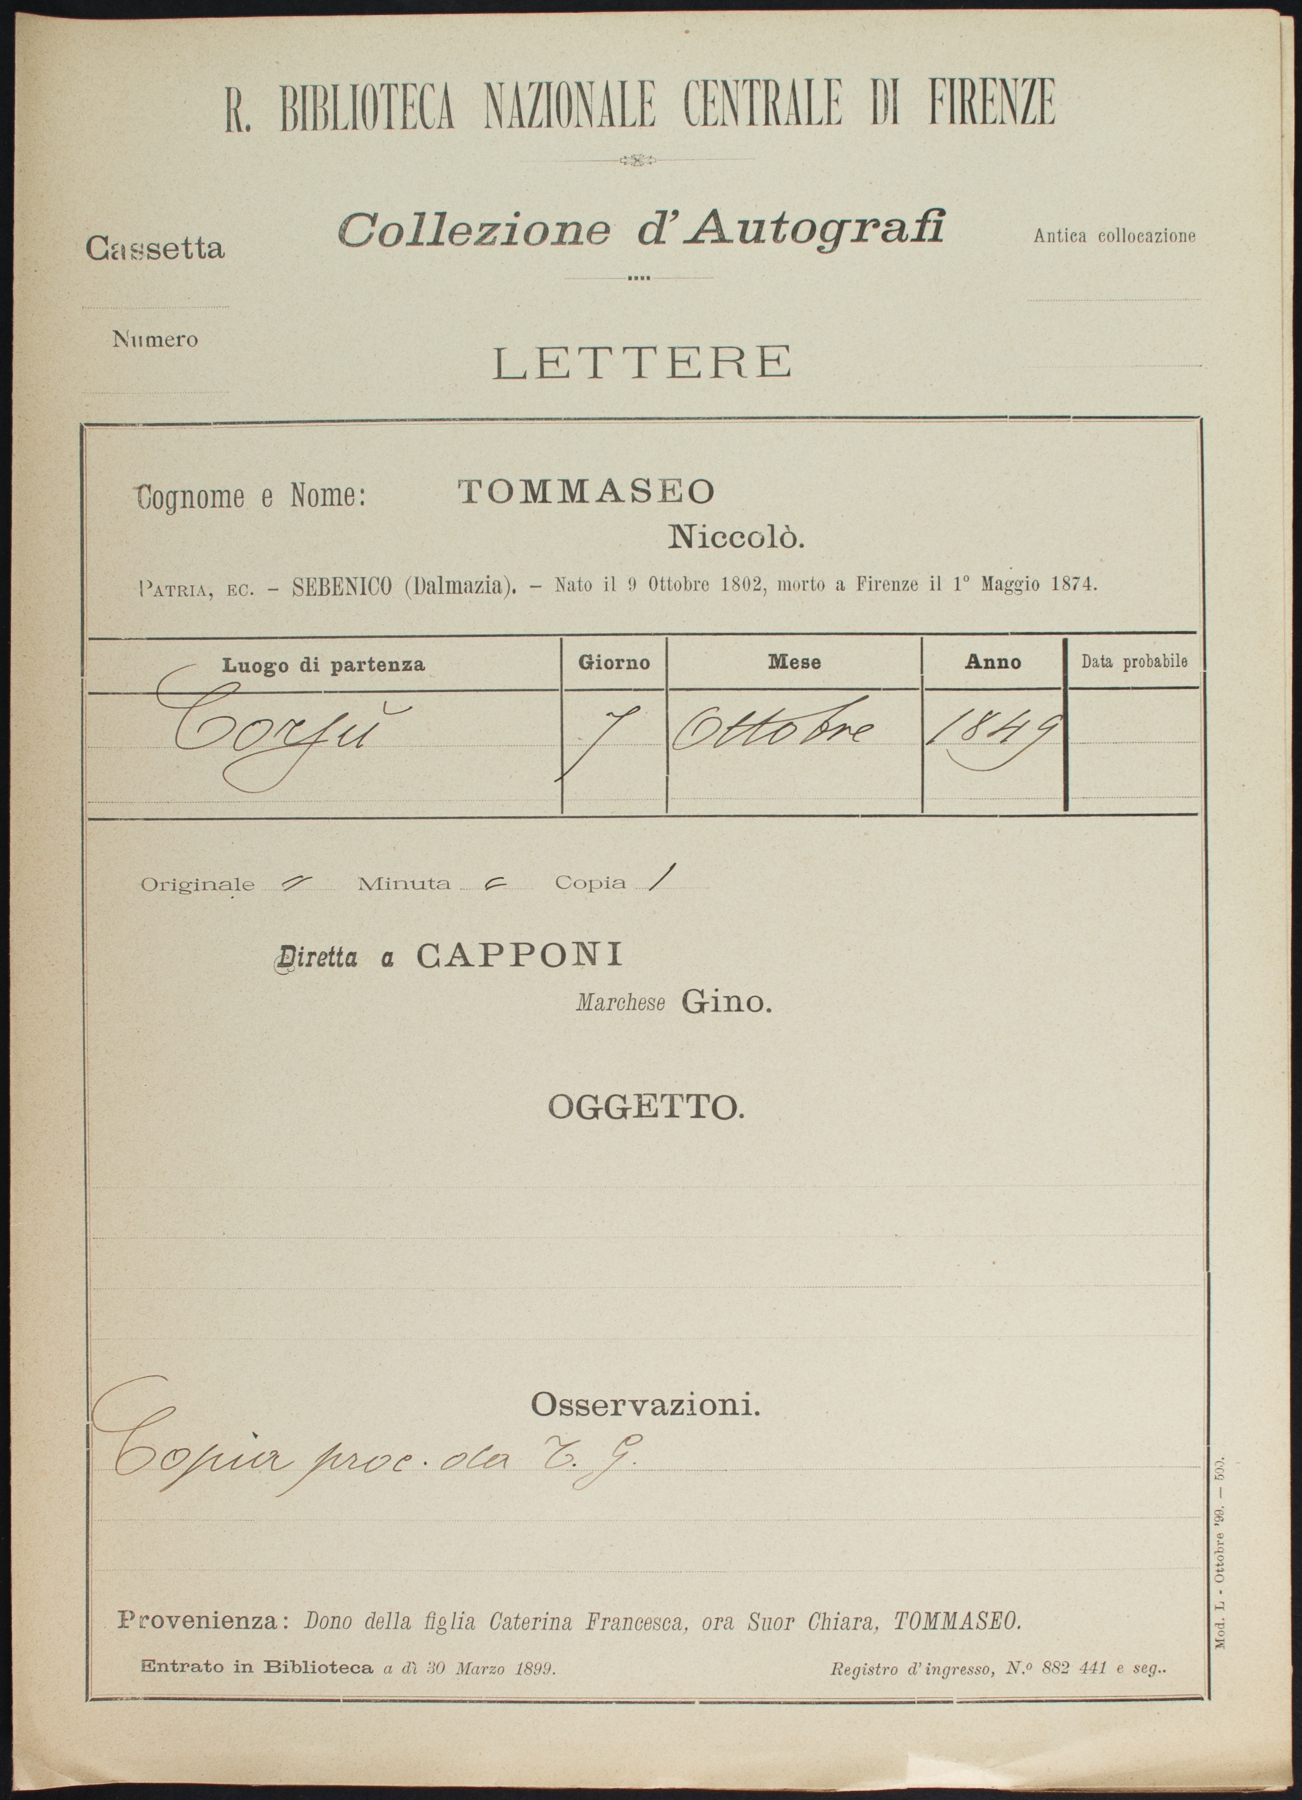 R. BIBLIOTECA NAZIONALE CENTRALE DI FIRENZE
Collezione d'Autografi
Cassetta
Antica collocazione
Numero
LETTERE
Cognome e Nome: TOMMASEO
Niccolò.
PATRIA, EC. – SEBENICO (Dalmazia). – Nato il 9 Ottobre 1802, morto a Firenze il 1º Maggio 1874.
Luogo di partenza Giorno Mese Anno Data probabile
Corfù 7 Ottobre 1849
Originale " Minuta " Copia 1
Diretta a CAPPONI
Marchese Gino.
OGGETTO.
Osservazioni.
Copia proc. da T. G.
Provenienza: Dono della figlia Caterina Francesca, ora Suor Chiara, TOMMASEO.
Entrato in Biblioteca a dì 30 Marzo 1899.
Registro d'ingresso, N.º 882 441 e seg..
Mod. L - Ottobre '99. — 500.